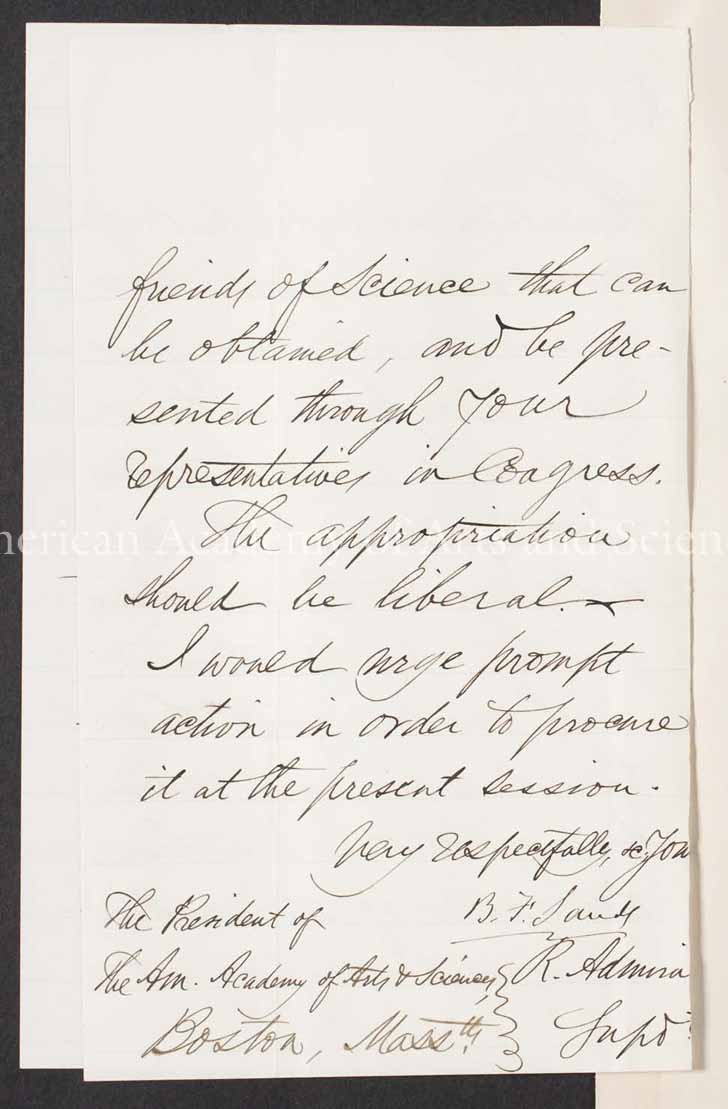 friends of Science that can
be obtained, and be pre-
sented through your
representatives in Congress.
The appropriation
should be liberal.
I would urge prompt
action in order to procure
it at the present session.
Very respectfully, &c. You
B. F. Sands
The President of
The Am. Academy of Arts & Sciences R. Admira
Boston, Massth. Supdt
merican Academy of Arts and Scien